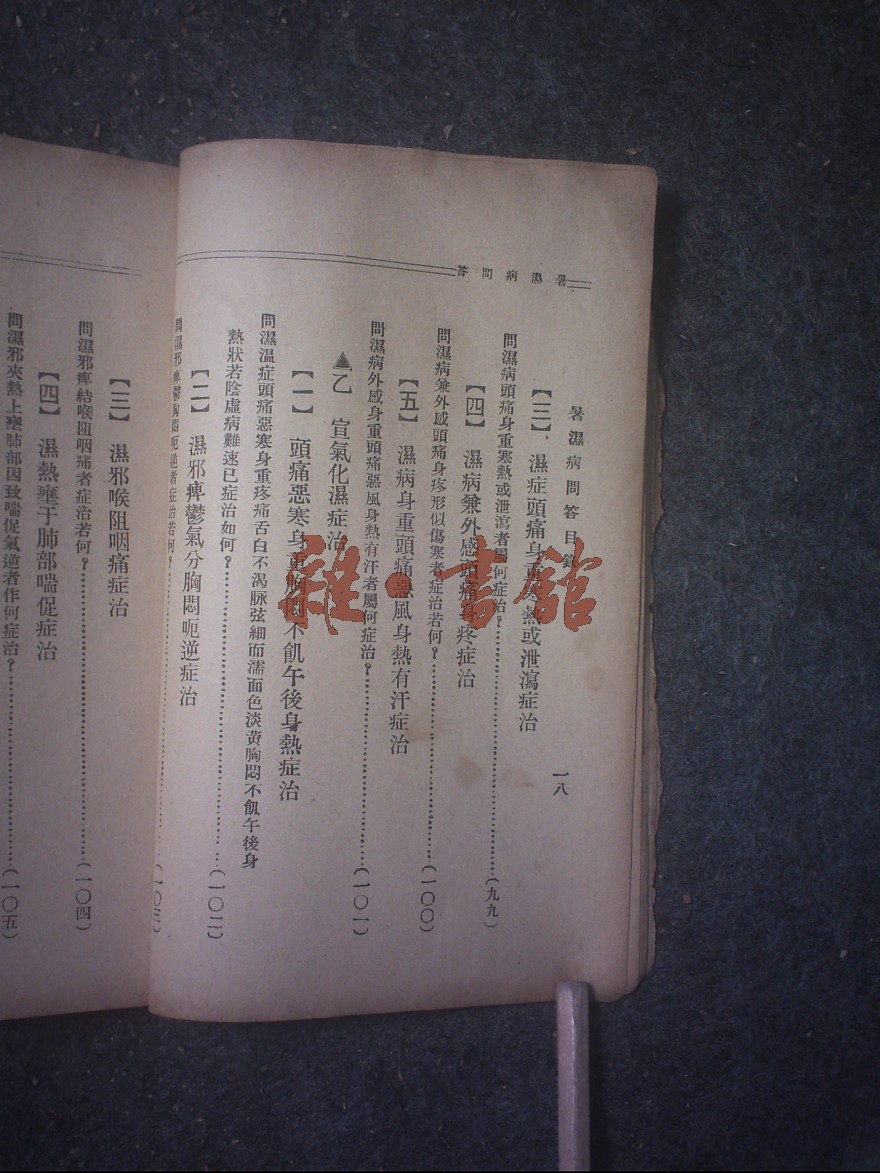 暑濕病問答
暑濕病問答目錄
一八
【三】濕症頭痛身重寒熱或泄瀉症治
問濕病頭痛身重寒熱或泄瀉者屬何症治?……(九九)
【四】濕病兼外感頭痛身疼症治
問濕病兼外感頭痛身疼形似傷寒者症治若何?……(一〇〇)
【五】濕病身重頭痛惡風身熱有汗症治
問濕病外感身重頭痛惡風身熱有汗者屬何症治?……(一〇一)
▲乙 宣氣化濕症治
【一】頭痛惡寒身重胸悶不飢午後身熱症治
問濕溫症頭痛惡寒身重疼痛舌白不渴脉弦細而濡面色淡黃胸悶不飢午後身
熱狀若陰虛病難速已症治如何?……(一〇二)
【二】濕邪痺鬱氣分胸悶呃逆症治
問濕邪痺鬱胸悶呃逆者症治若何?……(一〇三)
【三】濕邪喉阻咽痛症治
問濕邪痺結喉阻咽痛者症治若何?……(一〇四)
【四】濕熱壅于肺部喘促症治
問濕邪夾熱上壅肺部因致喘促氣逆者作何症治?……(一〇五)
雜·書館